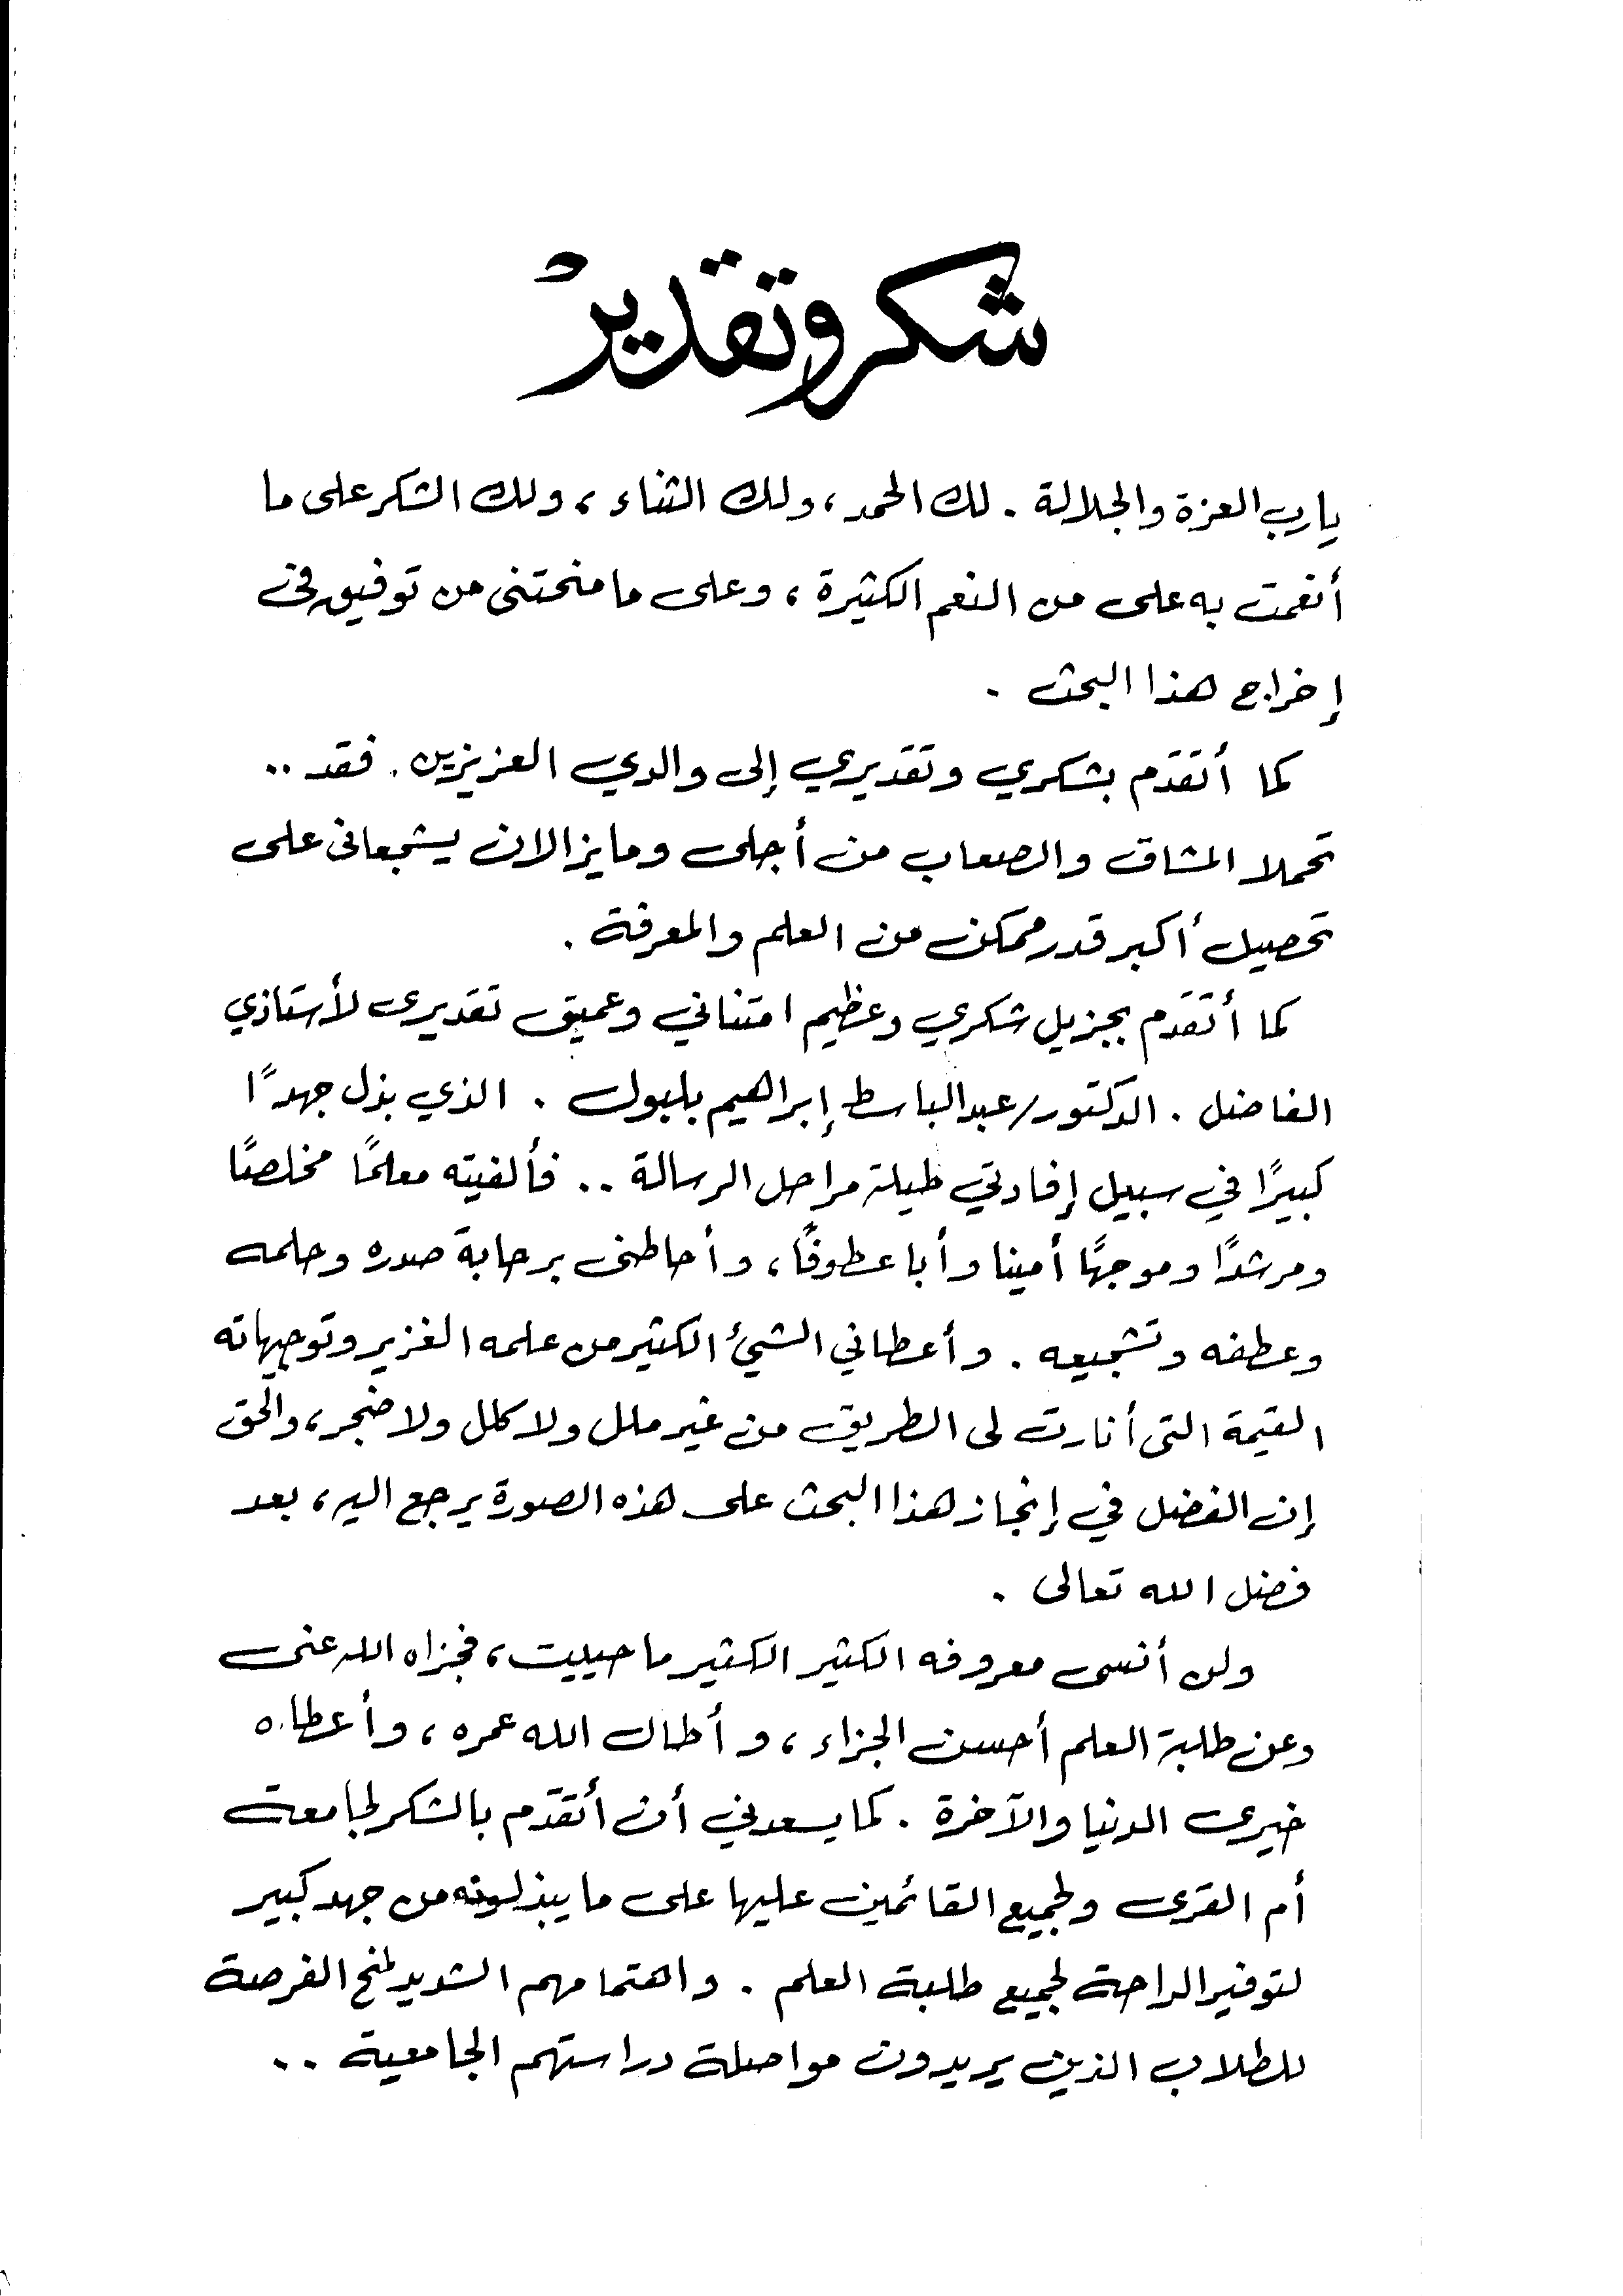 شكر وتقدير
يارب العزة والجلالة . لك الحمد ، ولك الثناء ، ولك الشكر على ما
أنعمت به على من النعم الكثيرة ، وعلى ما منحتنى من توفيق فى
إخراج هذا البحث .
كما أتقدم بشكري وتقديري إلى والدي العزيزين . فقد ..
تحملا المشاق والصعاب من أجلى وما يزالان يشجعانى على
تحصيل أكبر قدر ممكن من العلم والمعرفة .
كما أتقدم بجزيل شكري وعظيم امتناني وعميق تقديرى لأستاذي
الفاضل . الدكتور/ عبدالباسط إبراهيم بلبول . الذي بذل جهدًا
كبيرًا في سبيل إفادتي طيلة مراحل الرسالة .. فألفيته معلمًا مخلصًا
ومرشدًا وموجهًا أمينا وأبا عطوفًا ، وأحاطنى برحابة صدره وحلمه
وعطفه وتشجيعه . وأعطاني الشيئ الكثير من علمه الغزير وتوجيهاته
القيمة التى أنارت لى الطريق من غير ملل ولا كلل ولا ضجر ، والحق
إن الفضل في إنجاز هذا البحث على هذه الصورة يرجع اليه ، بعد
فضل الله تعالى .
ولن أنسى معروفه الكثير الكثير ما حييت ، فجزاه الله عنى
وعن طلبة العلم أحسن الجزاء ، وأطال الله عمره ، وأعطاه
خيرى الدنيا والآخرة . كما يسعدني أن أتقدّم بالشكر لجامعة
أم القرى ولجميع القائمين عليها على ما يبذلونه من جهد كبير
لتوفير الراحة لجميع طلبة العلم . واهتمامهم الشديد لمنح الفرصة
للطلاب الذين يريدون مواصلة دراستهم الجامعية ..